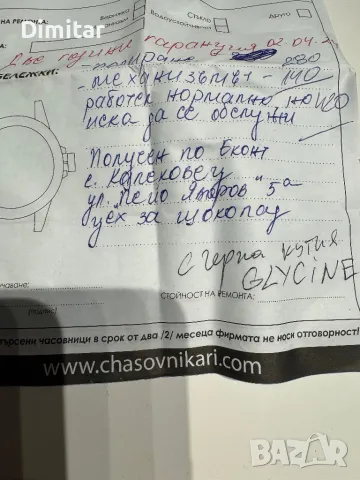 Dimitar
НА РЕМОНТА:
Верижка
Стъкло
Друго
Водоустойчивост
Две години гаранция 02.04.2
БЕЛЕЖКИ:
- полиране 280
- механизмът 140
работи нормално, но
иска да се обслужи
Получен по Еконт
с. Калековец
ул. Пейо Яворов "5а
цех за шоколад
с черна кутия
GLYCINE
СТОЙНОСТ НА РЕМОНТА:
/подпис/
търсени часовници в срок от два /2/ месеца фирмата не носи отговорност!
www.chasovnikari.com
bazar